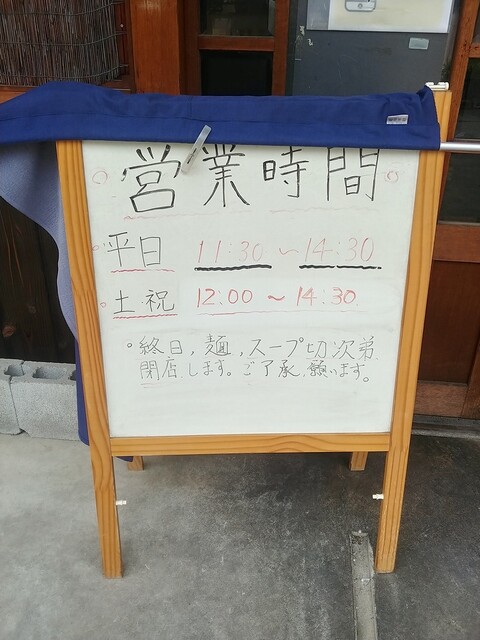 営業時間
平日 11:30 ~ 14:30
土祝 12:00 ~ 14:30
。終日,麺,スープ切次第
閉店します。ご了承願います。